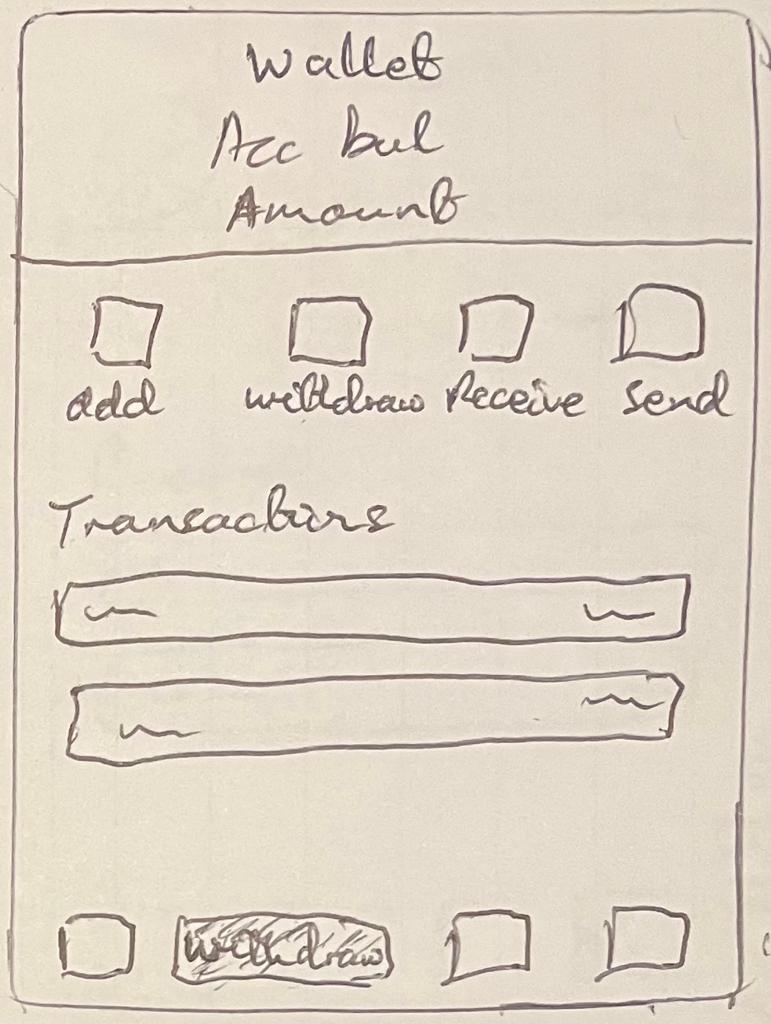 Wallet
Acc bal
Amount
add withdraw Receive send
Transactions
withdraw